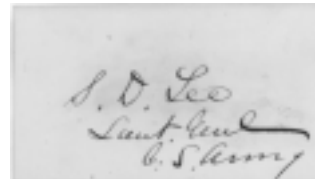 S. D. Lee
Lieut. Genl
C. S. Army